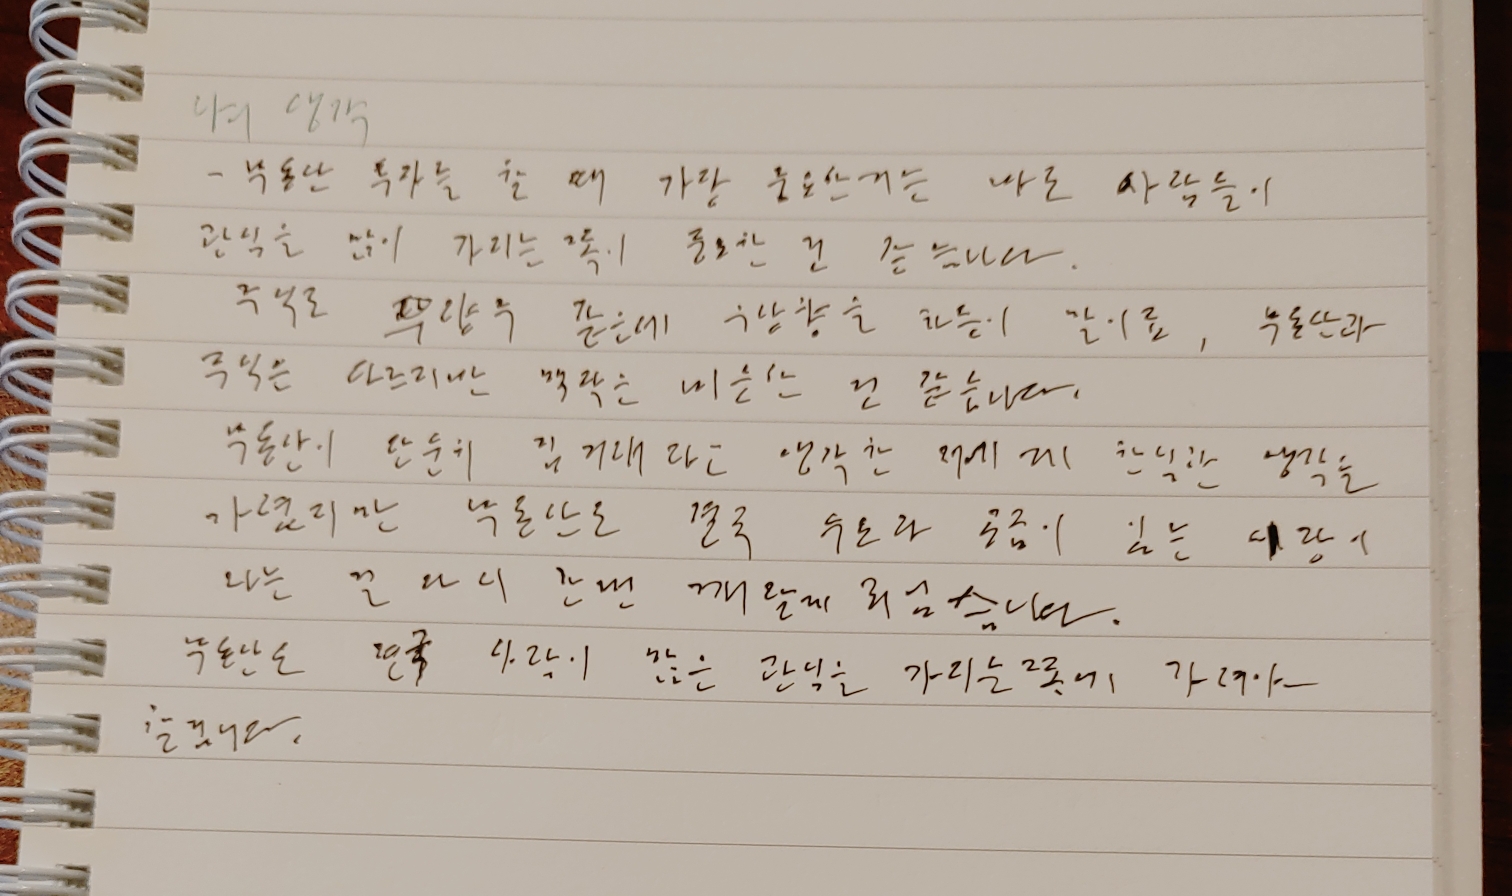 나의 생각
- 부동산 투자를 할 때 가장 중요한거는 바로 사람들이
관심을 많이 가지는 곳이 중요한 건 같습니다.
주식도 우량주 같은게 우상향을 하듯이 말이죠, 부동산과
주식은 다르지만 맥락은 비슷한 건 같습니다.
부동산이 단순히 집 거래라고 생각한 저에게 한심한 생각을
가졌지만 부동산도 결국 수요와 공급이 있는 시장이
라는 걸 다시 한번 깨닫게 되었습니다.
부동산도 결국 사람이 많은 관심을 가지는 곳에 가려야
할겁니다.